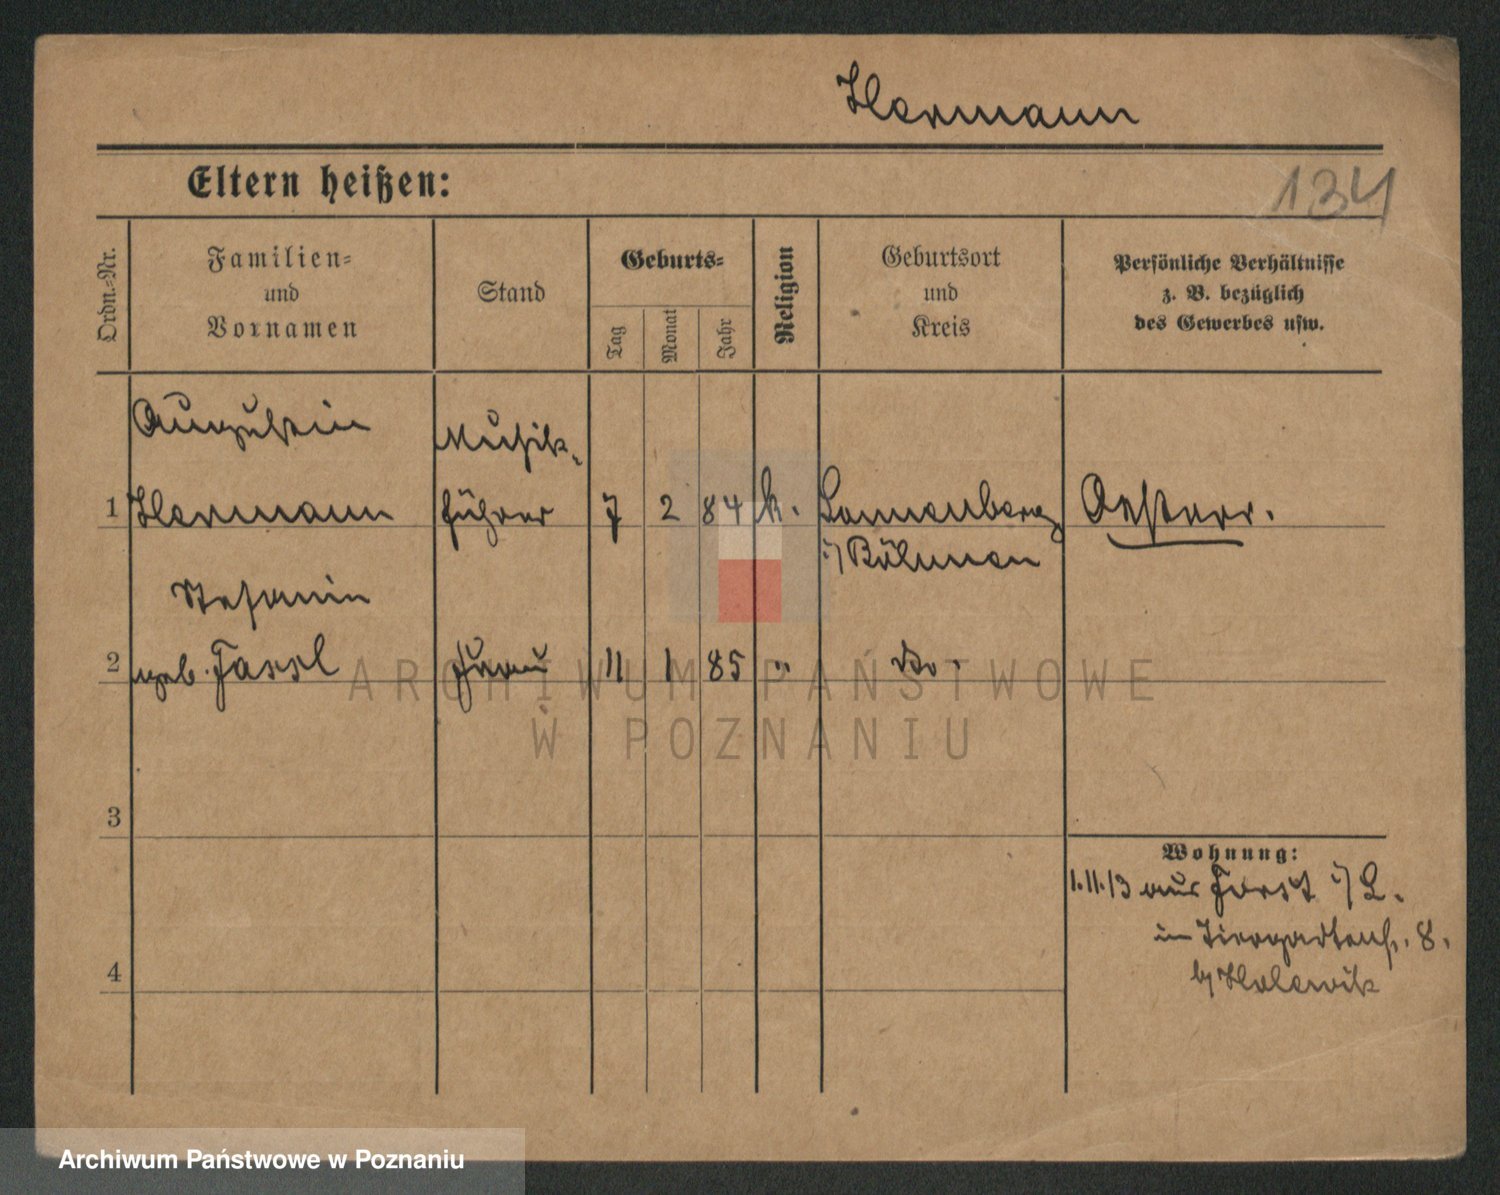 Hermann
Eltern heißen:
134
Ordn.=Nr.
Familien=
und
Vornamen
Stand
Geburts=
Tag
Monat
Jahr
Religion
Geburtsort
und
Kreis
Persönliche Verhältnisse
z. B. bezüglich
des Gewerbes usw.
Augustin Musik-
1 Hermann führer 7 2 84 k. Sonnenberg Oesterr.
i/ Böhmen
Stefanie
2 geb. Fassl Frau 11 1 85 " do.
3
4
Wohnung:
1.11.13 aus Forst i/ L.
in Tiergartenstr. 8.
b/
ARCHIWUM PAŃSTWOWE
W POZNANIU
Archiwum Państwowe w Poznaniu